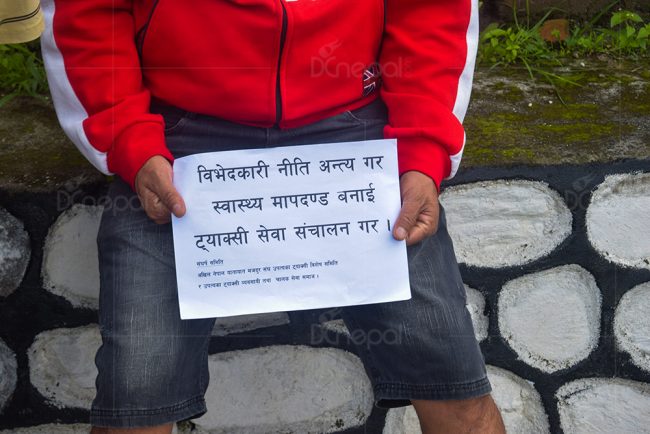 विभेदकारी नीति अन्त्य गर
स्वास्थ्य मापदण्ड बनाई
ट्याक्सी सेवा संचालन गर ।
संघर्ष समिति
अखिल नेपाल यातायात मजदुर संघ उपत्यका ट्याक्सी विशेष समिति
र उपत्यका ट्याक्सी व्यवसायी तथा चालक सेवा समाज ।
DCnepal